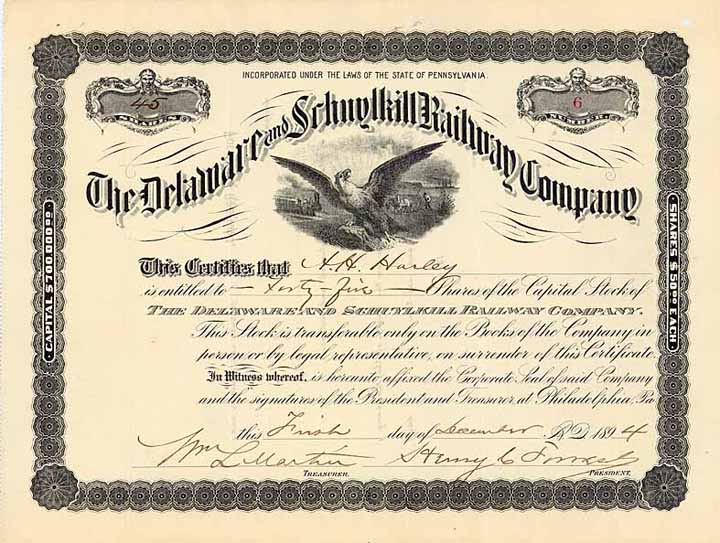 INCORPORATED UNDER THE LAWS OF THE STATE OF PENNSYLVANIA.
45
NUMBER
6
NUMBER
The Delaware and Schuylkill Railway Company
CAPITAL $700,000.00
SHARES $50.00 EACH
This Certifies that A.H. Harley
is entitled to — Forty-Five — Shares of the Capital Stock of
THE DELAWARE AND SCHUYLKILL RAILWAY COMPANY.
This Stock is transferable only on the Books of the Company in
person or by legal representative, on surrender of this Certificate.
In Witness whereof, is hereunto affixed the Corporate Seal of said Company
and the signatures of the President and Treasurer, at Philadelphia, Pa
this First day of December A.D. 1894
Wm L Martin Henry C
TREASURER. PRESIDENT.